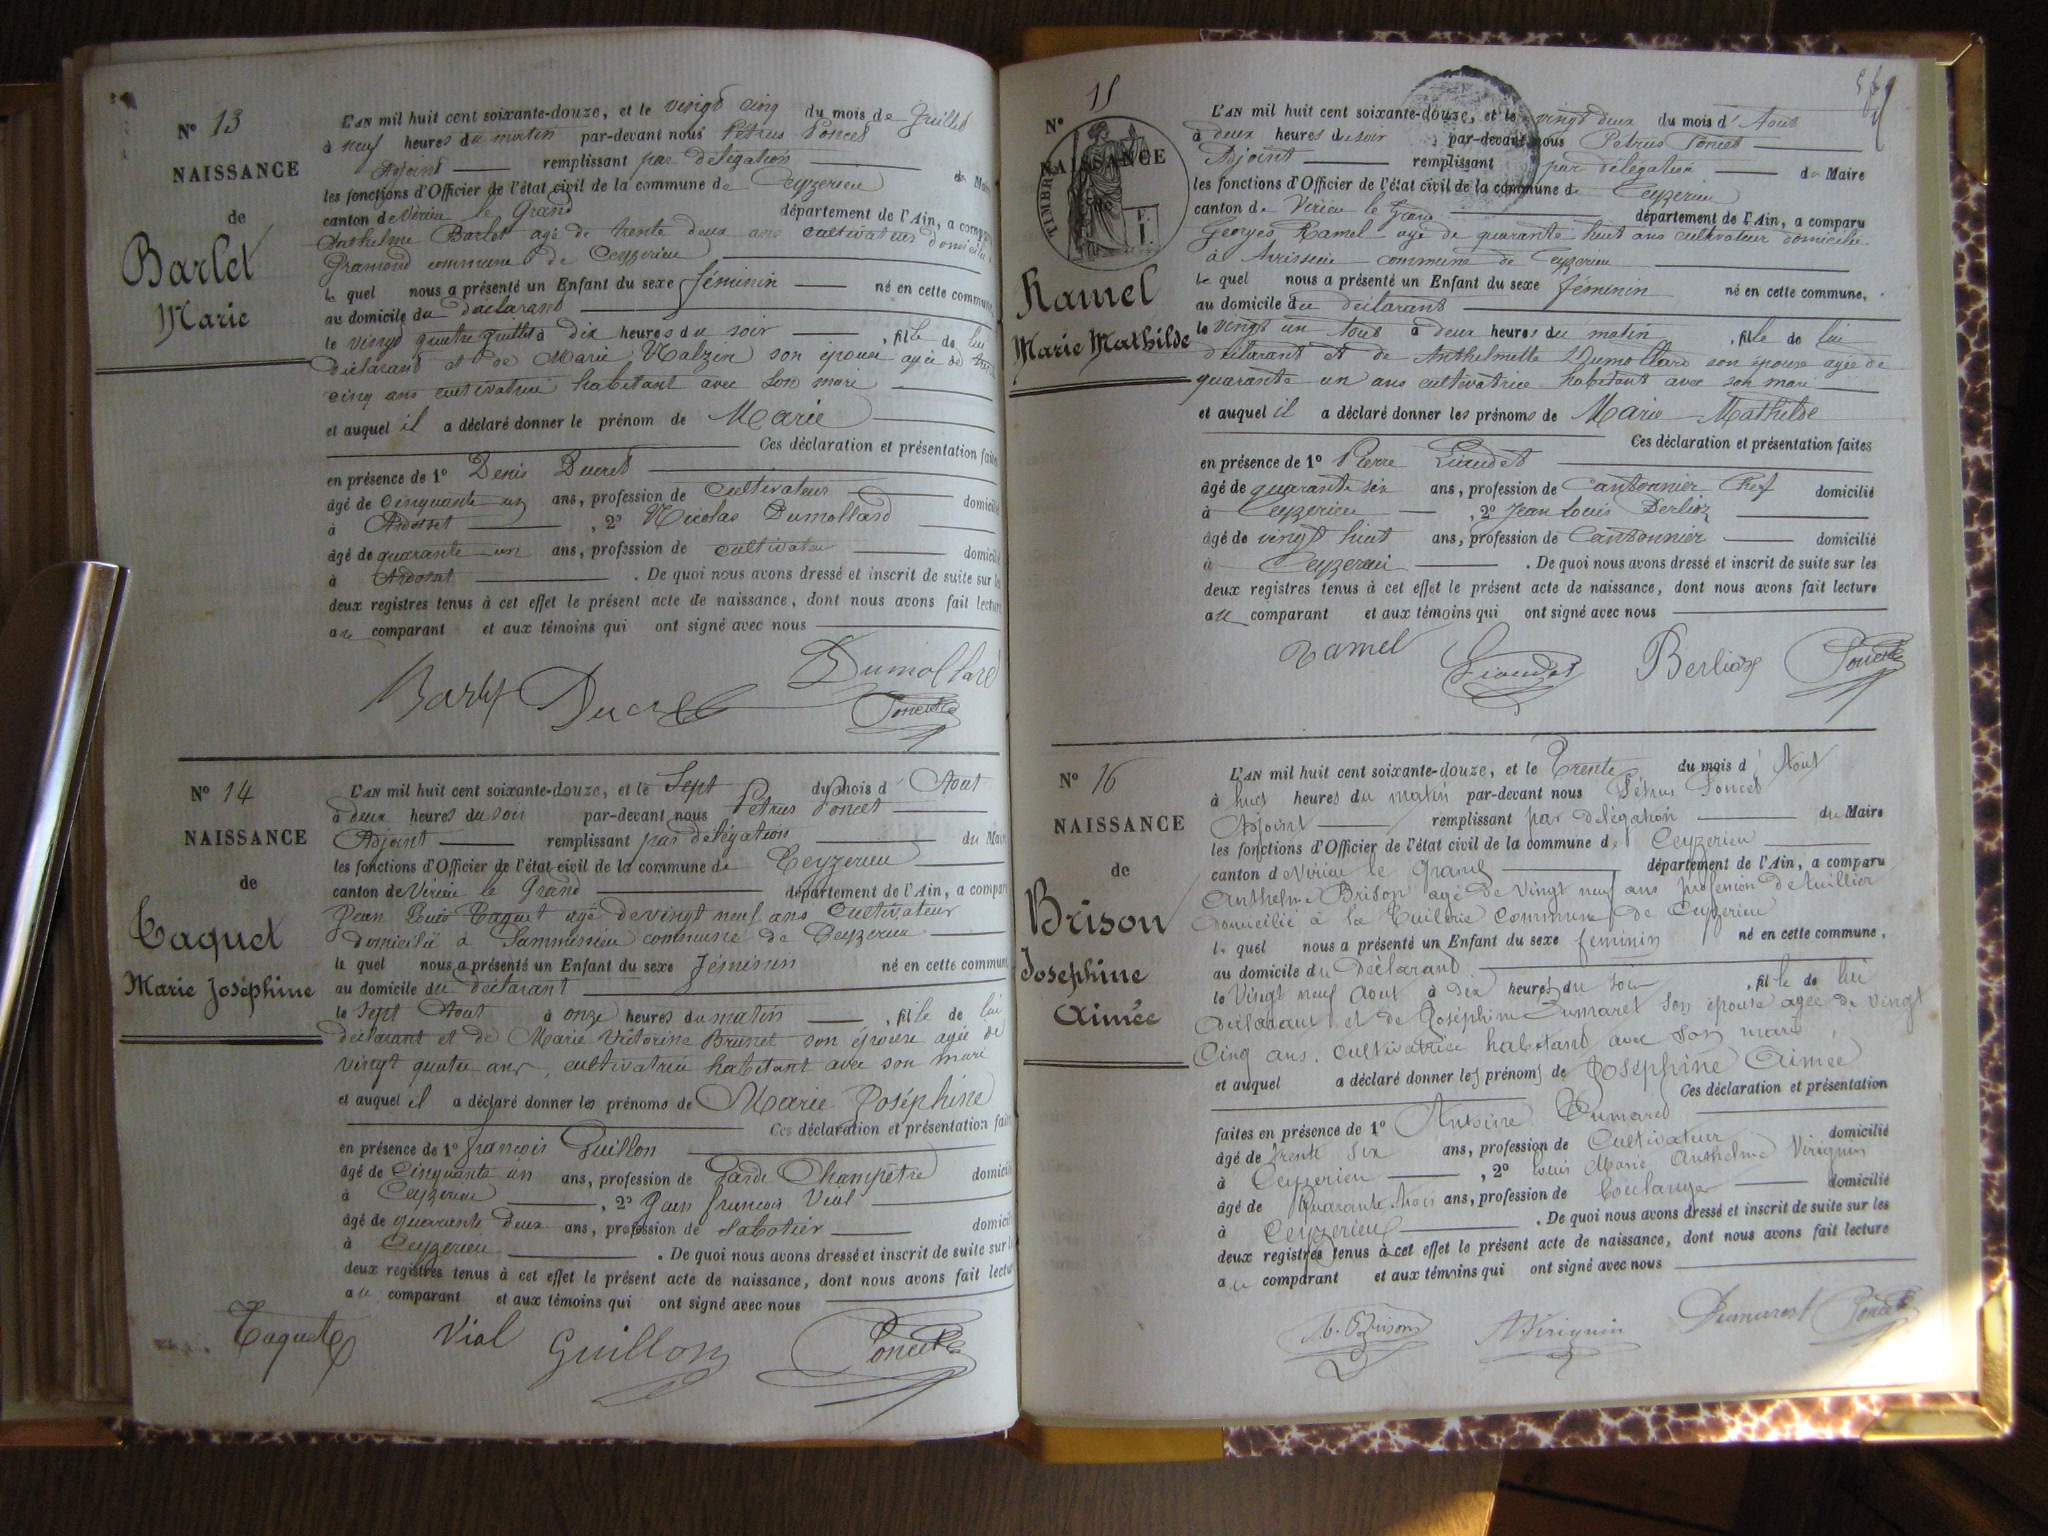 Nº 13
NAISSANCE
de
Barlet
Marie
L'AN mil huit cent soixante-douze, et le vingt cinq du mois de Juillet
à neuf heures du matin par-devant nous Pétrus Poncet
Adjoint remplissant par délégation du Maire
les fonctions d'Officier de l'état civil de la commune de Ceyzerieu
canton de Virieu le Grand département de l'Ain, a comparu
Anthelme Barlet agé de trente deux ans cultivateur domicilié
Gramond commune de Ceyzerieu
le quel nous a présenté un Enfant du sexe féminin né en cette commune,
au domicile du déclarant
le vingt quatre Juillet à dix heures du soir , fille de lui
déclarant et de Marie son épouse agée de trente
cinq ans cultivatrice habitant avec son mari
et auquel il a déclaré donner le prénom de Marie
Ces déclaration et présentation faites
en présence de 1º Denis Ducret
âgé de Cinquante un ans, profession de Cultivateur domicilié
à Ardosset , 2º Nicolas Dumollard
âgé de quarante un ans, profession de cultivateur domicilié
à Ardosset . De quoi nous avons dressé et inscrit de suite sur les
deux registres tenus à cet effet le présent acte de naissance, dont nous avons fait lecture
au comparant et aux témoins qui ont signé avec nous
Barlet Ducret Dumollard
Poncet
Nº 14
NAISSANCE
de
Taquet
Marie Joséphine
L'AN mil huit cent soixante-douze, et le Sept du mois d' Aout
à deux heures du soir par-devant nous Pétrus Poncet
Adjoint remplissant par délégation du Maire
les fonctions d'Officier de l'état civil de la commune de Ceyzerieu
canton de Virieu le Grand département de l'Ain, a comparu
Jean Louis Taquet agé de vingt neuf ans Cultivateur
domicilié à commune de Ceyzerieu
le quel nous a présenté un Enfant du sexe féminin né en cette commune
au domicile du déclarant
le sept Aout à onze heures du matin , fille de lui
déclarant et de Marie Victorine Brunet son épouse agée de
vingt quatre ans, cultivatrice habitant avec son mari
et auquel il a déclaré donner les prénoms de Marie Joséphine
Ces déclaration et présentation faites
en présence de 1º françois Guillon
âgé de Cinquante un ans, profession de Garde Champetre domicilié
à Ceyzerieu , 2º Jean françois Vial
âgé de quarante deux ans, profession de Sabotier domicilié
à Ceyzerieu . De quoi nous avons dressé et inscrit de suite sur les
deux registres tenus à cet effet le présent acte de naissance, dont nous avons fait lecture
au comparant et aux témoins qui ont signé avec nous
Taquet Vial Guillon Poncet
Nº 15
NAISSANCE
de
TIMBRE
Ramel
Marie Mathilde
L'AN mil huit cent soixante-douze, et le vingt deux du mois d' Aout
à deux heures du soir par-devant nous Pétrus Poncet
Adjoint remplissant par délégation du Maire
les fonctions d'Officier de l'état civil de la commune de Ceyzerieu
canton de Virieu le Grand département de l'Ain, a comparu
Georges Ramel agé de quarante huit ans cultivateur domicilié
à Avrissieu commune de Ceyzerieu
le quel nous a présenté un Enfant du sexe féminin né en cette commune,
au domicile du déclarant
le vingt un Aout à deux heures du matin , fille de lui
déclarant et de Anthelmette Dumollard son épouse agée de
quarante un ans cultivatrice habitant avec son mari
et auquel il a déclaré donner les prénoms de Marie Mathilde
Ces déclaration et présentation faites
en présence de 1º Pierre Lioudet
âgé de quarante six ans, profession de Cantonnier Chef domicilié
à Ceyzerieu , 2º Jean Louis Berlioz
âgé de vingt huit ans, profession de Cantonnier domicilié
à Ceyzerieu . De quoi nous avons dressé et inscrit de suite sur les
deux registres tenus à cet effet le présent acte de naissance, dont nous avons fait lecture
au comparant et aux témoins qui ont signé avec nous
Ramel Lioudet Berlioz Poncet
Nº 16
NAISSANCE
de
Brison
Josephine
Aimée
L'AN mil huit cent soixante-douze, et le Trente du mois d' Aout
à huit heures du matin par-devant nous Pétrus Poncet
Adjoint remplissant par délégation du Maire
les fonctions d'Officier de l'état civil de la commune de Ceyzerieu
canton d Virieu le Grand département de l'Ain, a comparu
Anthelme Brison agé de Vingt neuf ans profession de tuillier
domicilié à la Tuilerie Commune de Ceyzerieu
le quel nous a présenté un Enfant du sexe feminin né en cette commune,
au domicile du Déclarant
le Vingt neuf Aout à dix heures du soir , fille de lui
déclarant et de Joséphine Dumarest son épouse agée de vingt
Cinq ans. cultivatrice habitant avec son mari
et auquel a déclaré donner les prénoms de Joséphine Aimée
Ces déclaration et présentation
faites en présence de 1º Antoine Dumarest
âgé de trente six ans, profession de Cultivateur domicilié
à Ceyzerieu , 2º Louis Marie Anthelme Virignin
âgé de Quarante trois ans, profession de boulanger domicilié
à Ceyzerieu . De quoi nous avons dressé et inscrit de suite sur les
deux registres tenus à cet effet le présent acte de naissance, dont nous avons fait lecture
au comparant et aux témoins qui ont signé avec nous
A. Brison A Virignin Dumarest Poncet